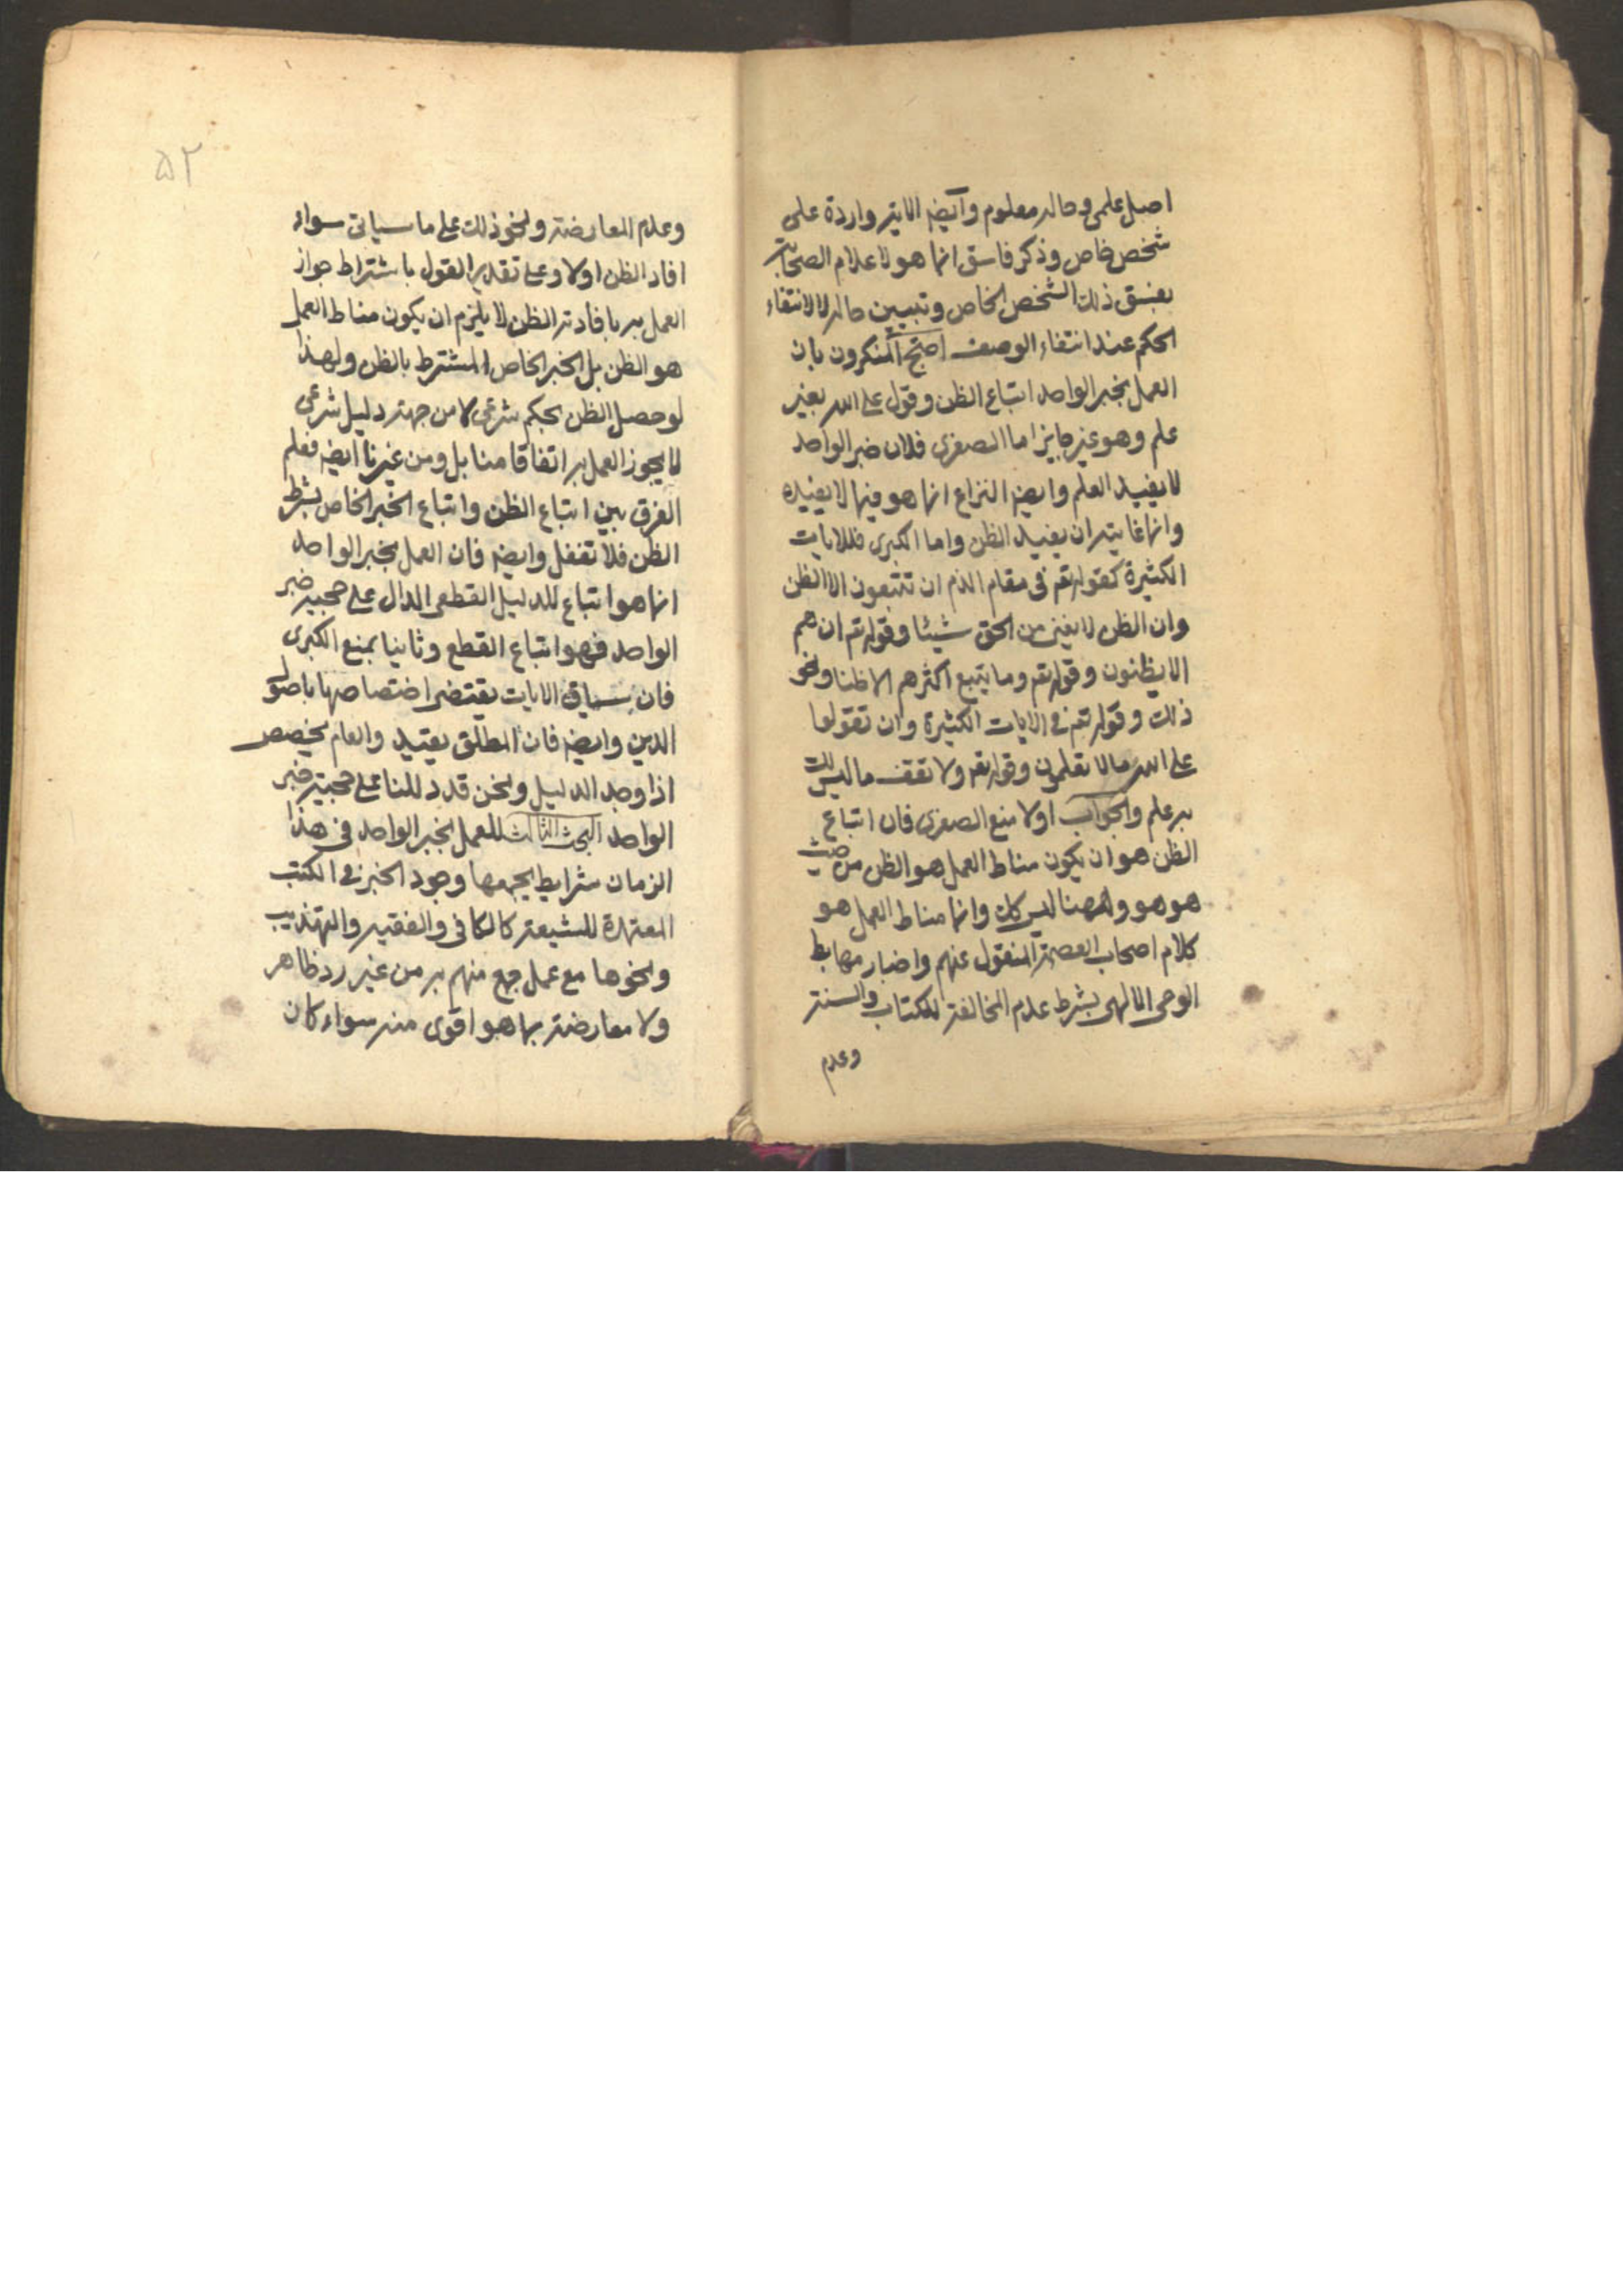 اصل علمى وحاله معلوم وايضه الاية واردة على
شخص خاص وذكر فاسق انما هو لاعلام الصحابة
بفسق ذلك الشخص الخاص وتبيين حاله لا لانتفاء
الحكم عند انتفاء الوصف احتج المنكرون بان
العمل بخبر الواحد اتباع الظن وقول على الله بغير
علم وهو غير جايز اما الصغرى فلان خبر الواحد
لا يفيد العلم وايضه النزاع انما هو فيما لا يفيده
وانما غايته ان يفيد الظن واما الكبرى فللايات
الكثيرة كقوله تعم فى مقام الذم ان تتبعون الا الظن
وان الظن لا يغنى من الحق شيئا وقوله تعم ان هم
الا يظنون وقوله تعم وما يتبع اكثرهم الا ظنا ونحو
ذلك وقوله تعم فى الايات الكثيرة وان تقولوا
على الله ما لا تعلمون وقوله تعم ولا تقف ما ليس لك
به علم والجواب اولا منع الصغرى فان اتباع
الظن هو ان يكون مناط العمل هو الظن من حيث
هو هو وههنا ليس كك وانما مناط العمل هو
كلام اصحاب العصمة المنقول عنهم واخبار مهابط
الوحى الالهى بشرط عدم المخالفة للكتاب والسنة
وعدم
۵۲
وعدم المعارضة ونحو ذلك على ما سياتى سواء
افاد الظن اولا وعلى تقدير القول باشتراط جواز
العمل به بافادته الظن لا يلزم ان يكون مناط العمل
هو الظن بل الخبر الخاص المشترط بالظن ولهذا
لو حصل الظن بحكم شرعى لا من جهة دليل شرعى
لا يجوز العمل به اتفاقا منا بل ومن غيرنا ايضه فعلم
الفرق بين اتباع الظن واتباع الخبر الخاص بشرط
الظن فلا تغفل وايضه فان العمل بخبر الواحد
انما هو اتباع للدليل القطعى الدال على حجية خبر
الواحد فهو اتباع القطع وثانيا بمنع الكبرى
فان سياق الايات يقتضى اختصاصها باصول
الدين وايضه فان المطلق يقيد والعام يخصص
اذا وجد الدليل ونحن قد دللنا على حجية خبر
الواحد البحث الثالث للعمل بخبر الواحد فى هذا
الزمان شرايط يجمعها وجود الخبر فى الكتب
المعتمدة للشيعة كالكافى والفقيه والتهذيب
ونحوها مع عمل جمع منهم به من غير رد ظاهر
ولا معارضة بما هو اقوى منه سواء كان